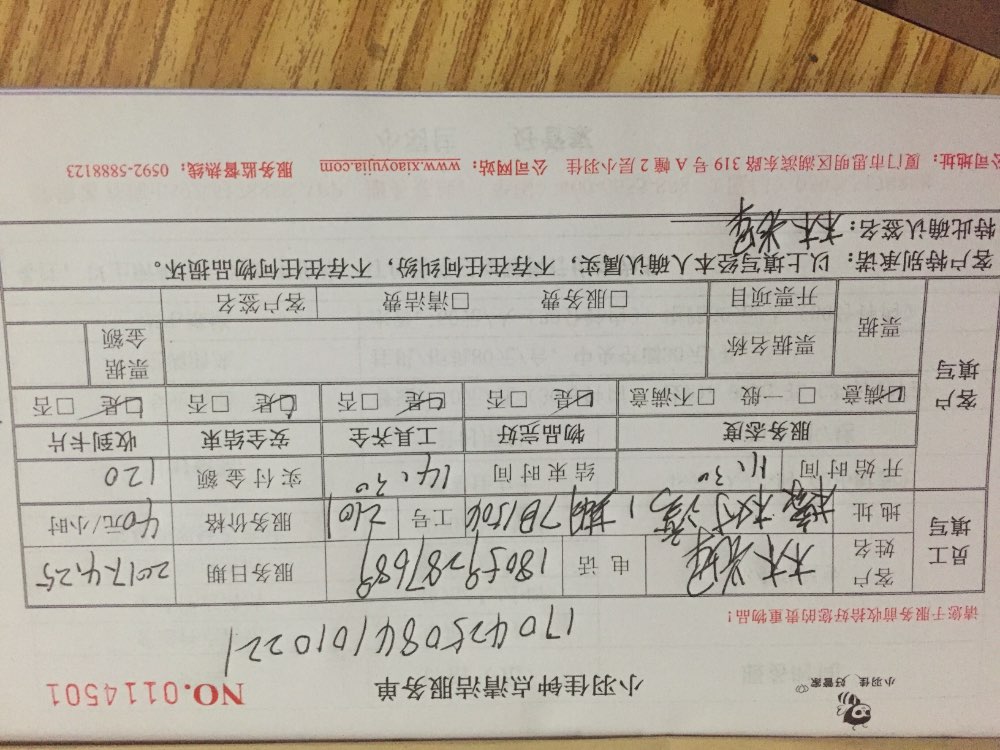 小羽佳 好管家
小羽佳钟点清洁服务单
NO.0114501
1704250841010221
请您于服务前收拾好您的贵重物品!
员工填写
客户姓名 林 电话 18059287689 服务日期 2017.4.25
地址 7B1506 工号 2101 服务价格 40元/小时
开始时间 11:30 结束时间 14:30 实付金额 120
客户填写
服务态度 物品完好 工具齐全 安全结束 收到卡片
☑满意 □一般 □不满意 ☑是 □否 ☑是 □否 ☑是 □否 ☑是 □否
票据 票据名称 票据金额
开票项目 □服务费 □清洁费 客户签名
客户特别承诺:以上填写经本人确认属实,不存在任何纠纷,不存在任何物品损坏。
特此确认签名:林
公司地址:厦门市思明区湖滨东路 319 号 A 幢 2 层小羽佳 公司网站:www.xiaoyujia.com 服务监督热线:0592-5888123